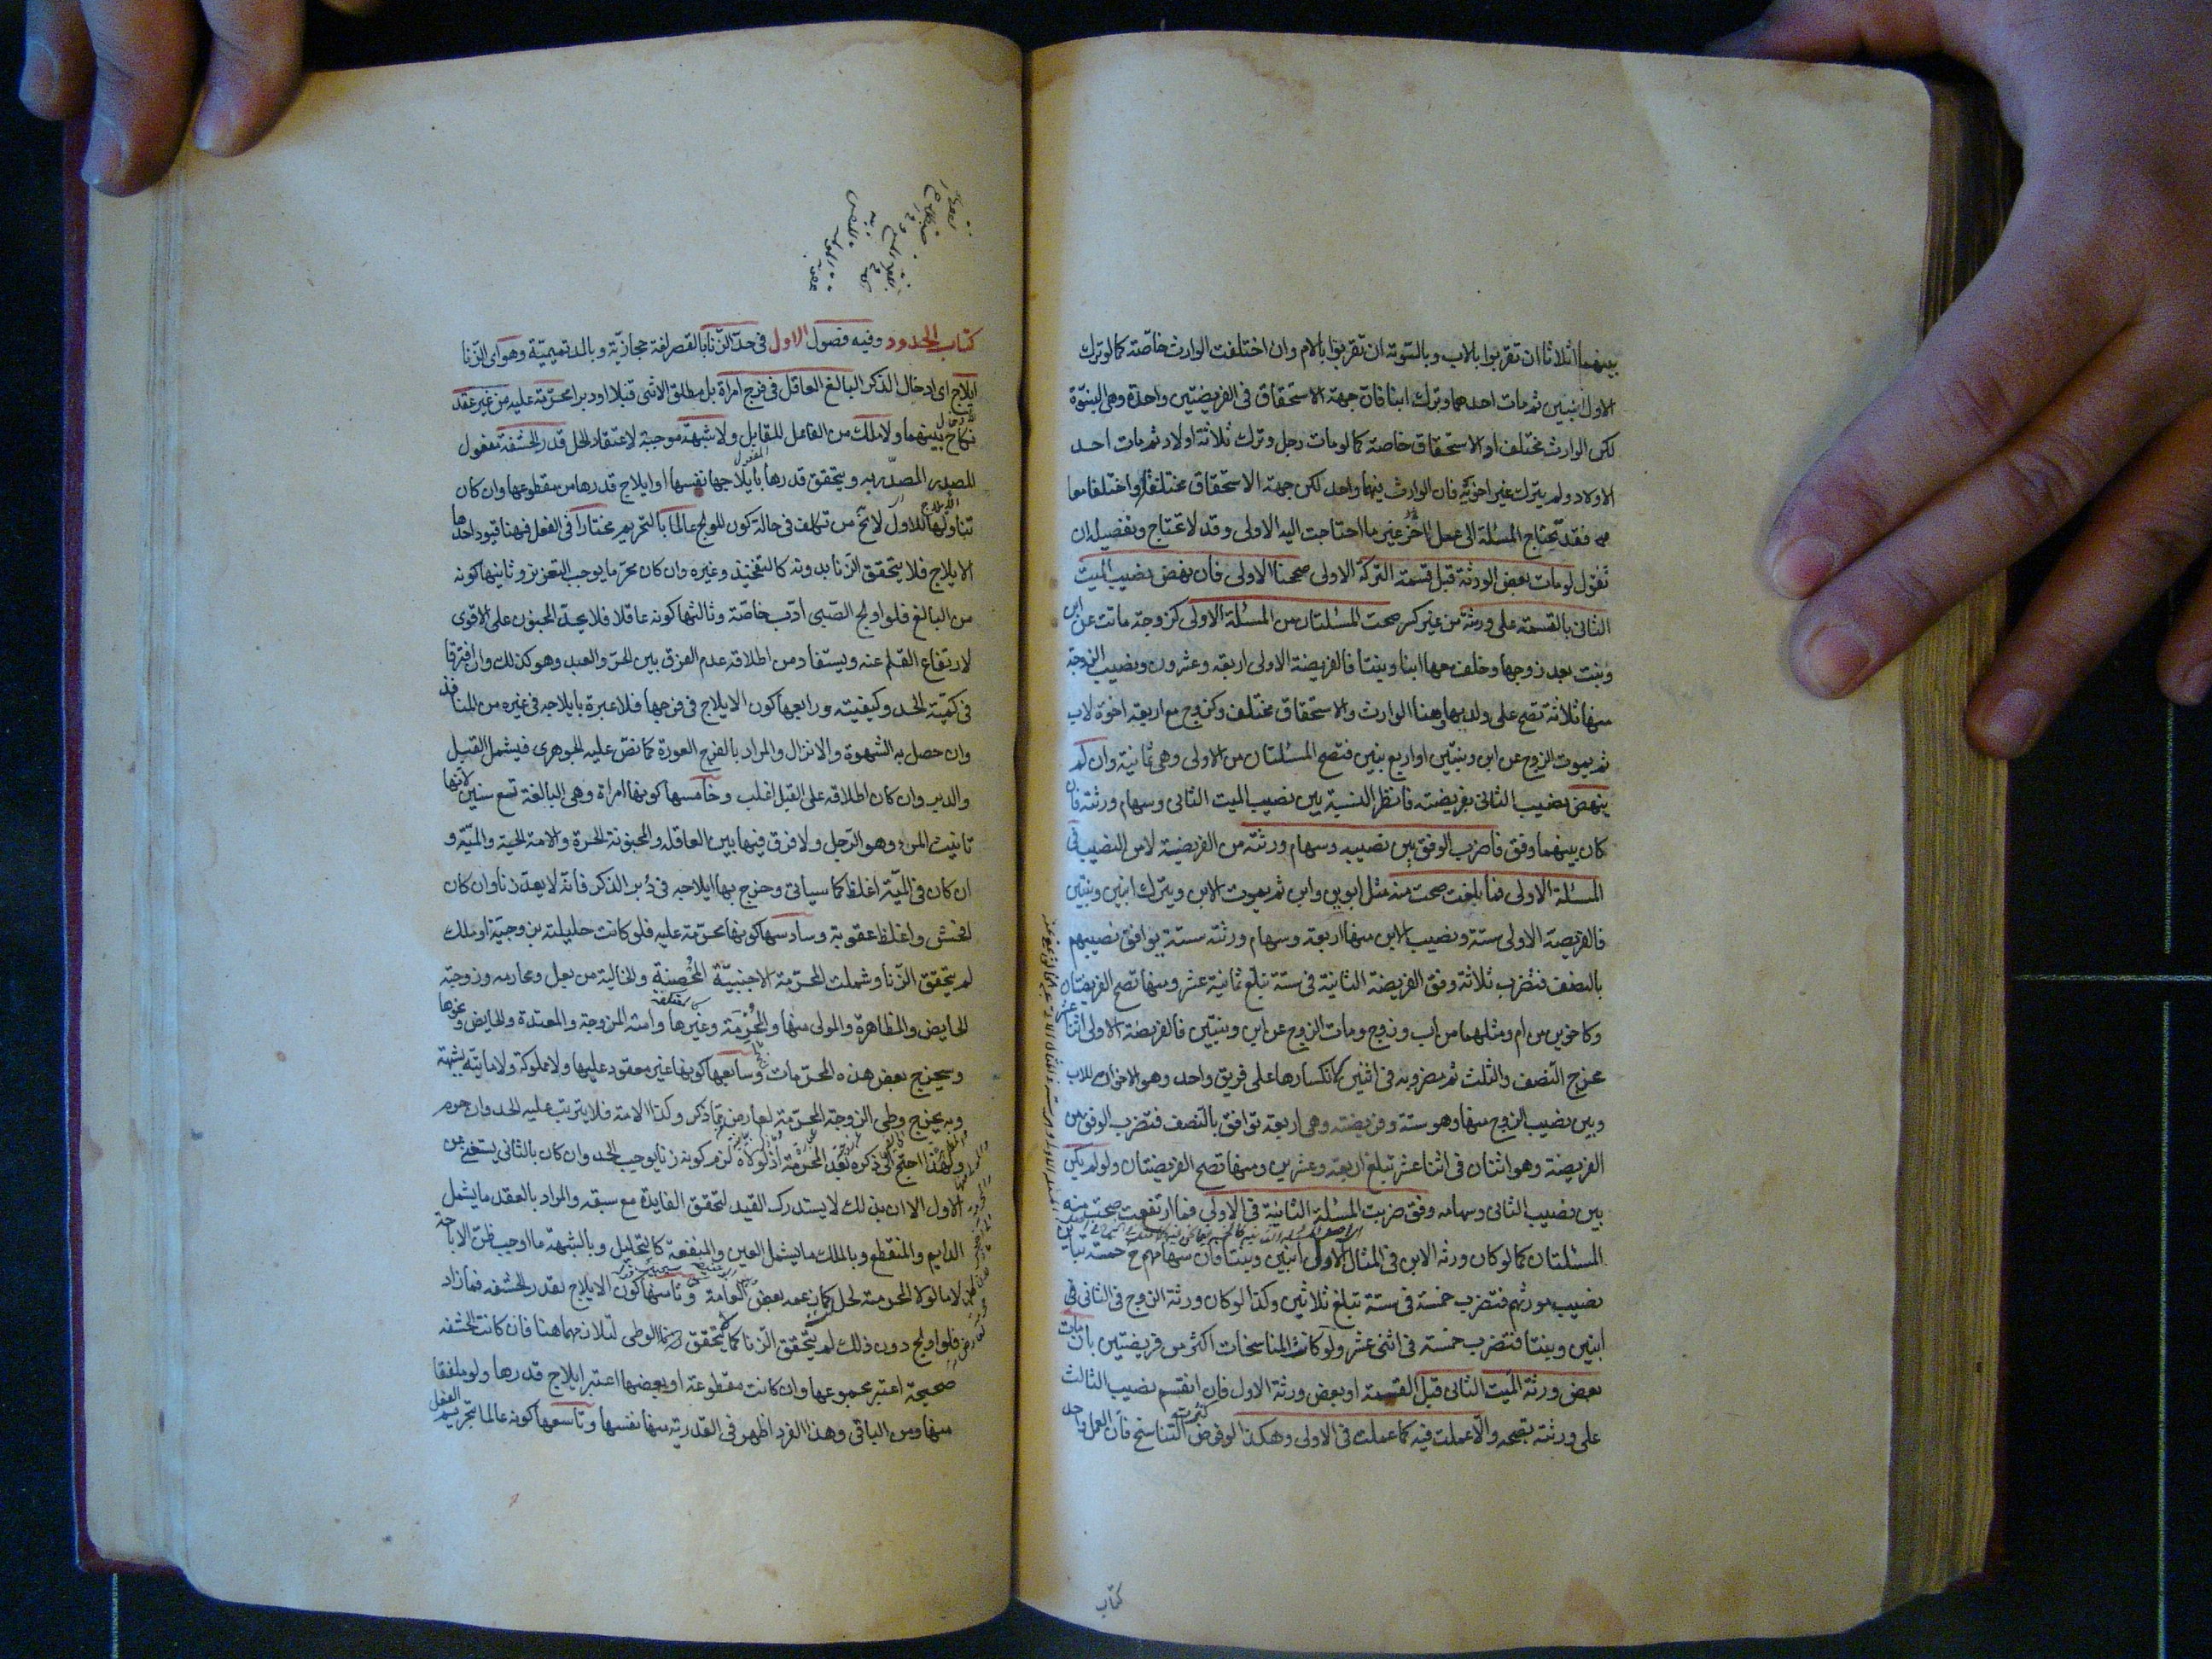 بينهما اثلاثا ان تقربوا بالاب وبالسوية ان تقربوا بالام وان اختلفت الوارث خاصة كما لو ترك
الاول ابنين ثم مات احدهما وترك ابنا فان جهة الاستحقاق في الفريضتين واحدة وهي البنوة
لكن الوارث مختلف او الاستحقاق خاصة كما لو مات رجل وترك ثلاثة اولاد ثم مات احد
الاولاد ولم يترك غير اخويه فان الوارث فيهما واحد لكن جهة الاستحقاق مختلفة او اختلفا معا
فقد تحتاج المسئلة الى عمل اخر غير ما احتاجت اليه الاولى وقد لا تحتاج وتفصيله ان
نقول لو مات بعض الورثة قبل قسمة التركة الاولى صححنا الاولى فان نهض نصيب الميت
الثاني بالقسمة على ورثته من غير كسر صحت المسئلتان من المسئلة الاولى كزوجة ماتت عن ابن
وبنت بعد زوجها وخلف معها ابنا وبنتا فالفريضة الاولى اربعة وعشرون ونصيب الزوجة
منها ثلاثة تصح على ولديها وهنا الوارث والاستحقاق مختلف وكزوج مع اربعة اخوة لاب
ثم يموت الزوج عن ابن وبنتين او اربع بنين فتصح المسئلتان من الاولى وهي ثمانية وان لم
ينهض نصيب الثاني بفريضته فانظر النسبة بين نصيب الميت الثاني وسهام ورثته فان
كان بينهما وفق فاضرب الوفق بين نصيبه وسهام ورثته من الفريضة لا من النصيب في
المسئلة الاولى فما بلغت صحت منه مثل ابوين وابن ثم يموت الابن ويترك ابنين وبنتين
فالفريضة الاولى ستة ونصيب الابن منها اربعة وسهام ورثته ستة يوافق نصيبهم
بالنصف فتضرب ثلاثة وفق الفريضة الثانية في ستة تبلغ ثمانية عشر ومنها تصح الفريضتان
وكاخوين من ام ومثلهما من اب وزوج ومات الزوج عن ابن وبنتين فالفريضة الاولى اثنا عشر
مخرج النصف والثلث ثم مضروبه في اثنين لانكسارها على فريق واحد وهو الاخوان للاب
وبين نصيب الزوج منها وهو ستة وفريضته وهي اربعة توافق بالنصف فتضرب الوفق من
الفريضة وهو اثنان في اثنا عشر تبلغ اربعة وعشرين ومنها تصح الفريضتان ولو لم يكن
بين نصيب الثاني وسهامه وفق ضربت المسئلة الثانية في الاولى فما ارتفعت صحت منه
المسئلتان كما لو كان ورثة الابن في المثال الاولى ابنين وبنتا فان سهامهم ح خمسة تباين
نصيب مورثهم فتضرب خمسة في ستة تبلغ ثلاثين وكذا لو كان ورثة الزوج في الثاني في
ابنين وبنتا فتضرب خمسة في اثني عشر ولو كانت المناسخات اكثر من فريضتين بان مات
بعض ورثة الميت الثاني قبل القسمة او بعض ورثة الاول فان انقسم نصيب الثالث
على ورثته بصحة والا عملت فيه كما عملت في الاولى وهكذا لو فرض كثرة التناسخ فان العمل واحد
كتاب
كتاب الحدود وفيه فصول الاول في حد الزنا بالقصر لغة حجازية وبالمد تميمية وهو اي الزنا
ايلاج اي ادخال الذكر البالغ العاقل في فرج امراة بل مطلق الانثى قبلا او دبرا محرمة عليه من غير عقد
نكاح بينهما ولا ملك من الفاعل للقابل ولا شبهة موجبة لاعتقاد الحل قدر الحشفة مفعول
للمصدر المصدر به ويتحقق قدرها بايلاجها نفسها او ايلاج قدرها من مقطوعها وان كان
تناولها للاول لا يخ من تكلف في حالة كون المولج عالما بالتحريم مختارا في الفعل فهنا قيود احدها
الايلاج فلا يتحقق الزنا بدونه كالتفخيذ وغيره وان كان محرما يوجب التعزير وثانيها كونه
من البالغ فلو اولج الصبي ادب خاصة وثالثها كونه عاقلا فلا يحد المجنون على الاقوى
لارتفاع القلم عنه ويستفاد من اطلاقه عدم الفرق بين الحر والعبد وهو كذلك وان افترقا
في كمية الحد وكيفيته ورابعها كون الايلاج في فرجها فلا عبرة بايلاجه في غيره من المنافذ
وان حصل به الشهوة والانزال والمراد بالفرج العورة كما نص عليه الجوهري فيشمل القبل
والدبر وان كان اطلاقه على القبل اغلب وخامسها كونها امراة وهي البالغة تسع سنين لانها
تانيث المرء وهو الرجل ولا فرق فيها بين العاقلة والمجنونة الحرة والامة الحية والميتة و
ان كان في الميتة اغلظ كما سياتي وخرج بها ايلاجه في دبر الذكر فانه لا يعد زنا وان كان
افحش واغلظ عقوبة وسادسها كونها محرمة عليه فلو كانت حليلته بزوجية او ملك
لم يتحقق الزنا وشملت المحرمة الاجنبية المحصنة والخالية من بعل ومحارمه وزوجته
الحايض والمظاهرة والمولى منها والمحرمة وغيرها وامته المزوجة والمعتدة والحايض ونحوها
وسيخرج بعض هذه المحرمات وسابعها كونها غير معقود عليها ولا مملوكة ولا ماتية بشبهة
وبه يخرج وطي الزوجة المحرمة لعارض مما ذكر وكذا الامة فلا يترتب عليه الحد وان حرم
ولهذا احتج الى ذكره بعد المحرمة اذ لولاه لزم كونه زنا يوجب الحد وان كان بالثاني يستغنى عن
الاول الا ان بذلك لا يستدرك القيد لتحقق الفايدة مع سبقه والمراد بالعقد ما يشمل
الدايم والمنقطع وبالملك ما يشمل العين والمنفعة كالتحليل وبالشبهة ما اوجب ظن الاباحة
لا ما لولا المحرمة لحل كما زعمه بعض العامة وثامنها كون الايلاج بقدر الحشفه فما زاد
فلو اولج دون ذلك لم يتحقق الزنا كما لا يتحقق الوطى لتلازمهما هنا فان كانت الحشفه
صحيحة اعتبر مجموعها وان كانت مقطوعة او بعضها اعتبر ايلاج قدرها ولو ملفقا
منها ومن الباقي وهذا الفرد اظهر في القدرية منها نفسها وتاسعها كونه عالما بتحريم الفعل